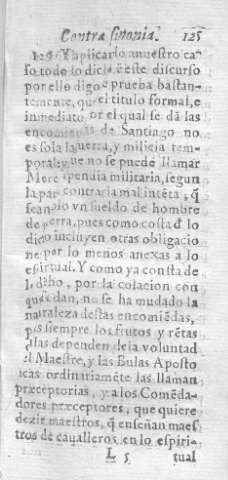 Contra simonia. 125
126 Y aplicarlo a nuestro ca-
so todo lo dicho ē este discurso
por ello digo se prueba bastan-
temente, que el titulo formal, e
inmediato por el qual se dā las
encomiendas de Santiago no
es sola la guerra, y milicia tem-
poral, que no se puede llamar
Merè stipendia militaria, segun
la parte contraria mal intēta, q̄
sean solo vn sueldo de hombre
de guerra, pues como costa d̄ lo
dicho incluyen otras obligacio
nes por lo menos anexas a lo
espiritual. Y como ya consta de
lo dicho, por la colacion con
que se dan, no se ha mudado la
naturaleza destas encomiēdas,
pues siempre los frutos y rētas
dellas dependen de la voluntad
del Maestre, y las Bulas Aposto
licas ordinariamēte las llaman
præceptorias, y a los Comēda-
dores præceptores, que quiere
dezir maestros, q̄ enseñan maes
tros de caualleros en lo espiri-
L 5 tual